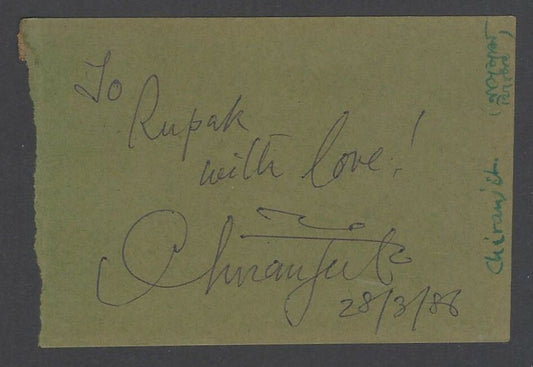 To
Rupak
with love!
Chiranjeet
28/3/86
Chiranjit.